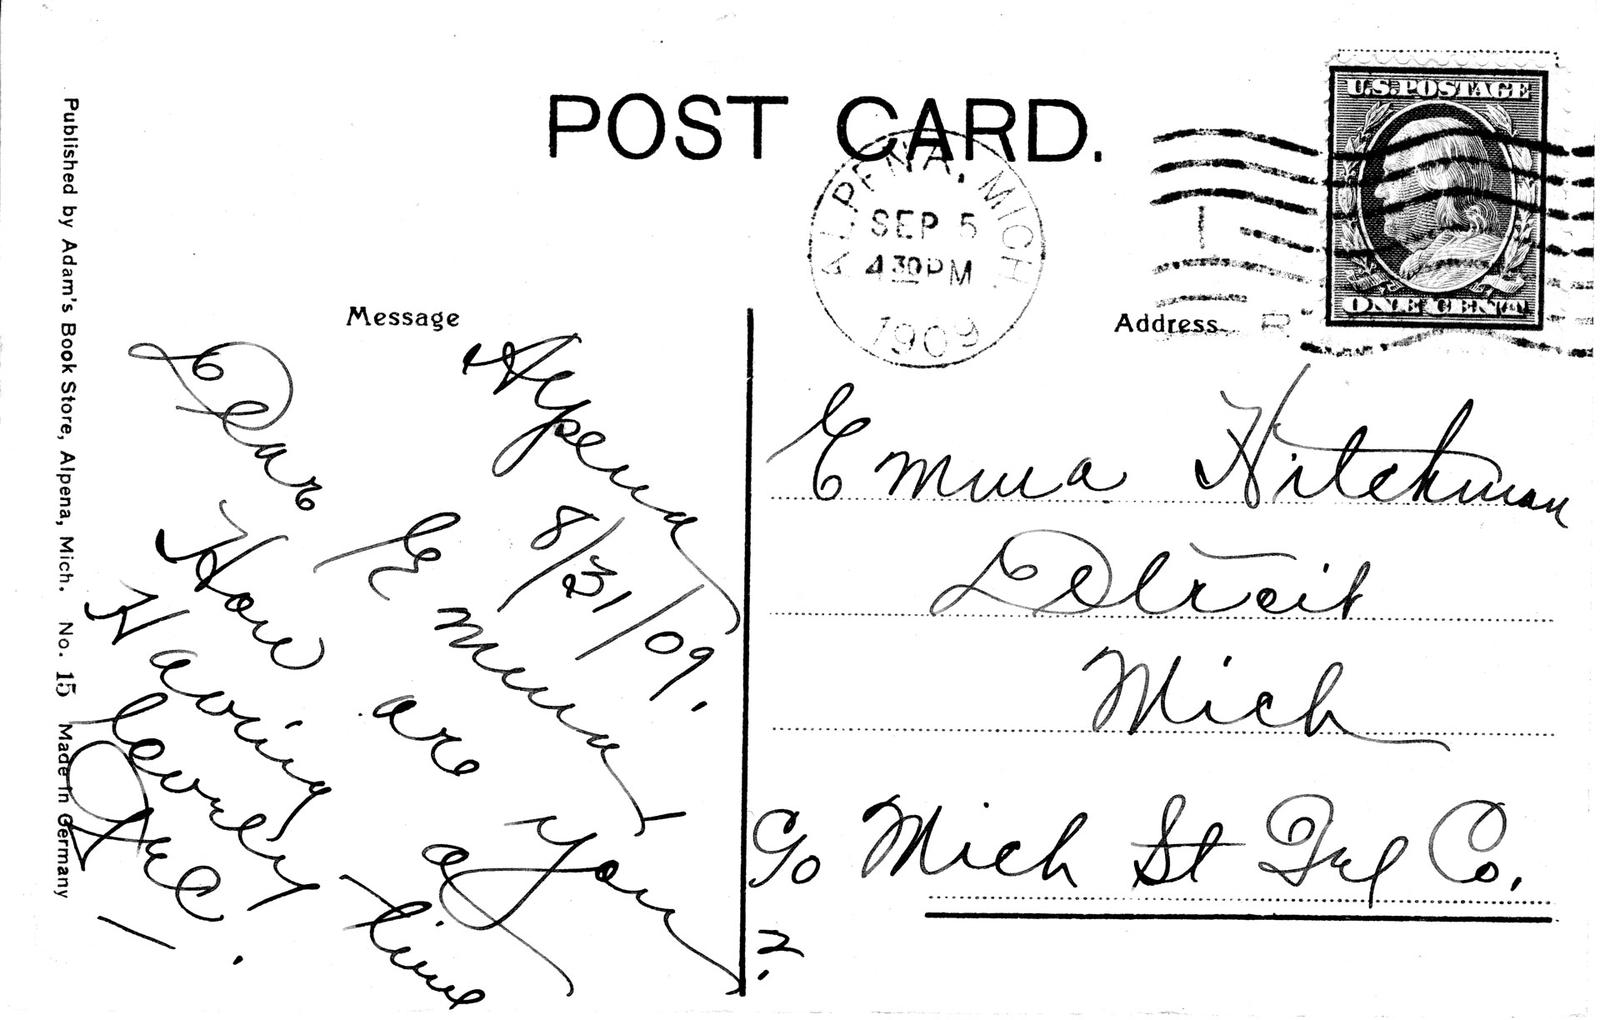 POST CARD.
U.S. POSTAGE
ONE CENT
ALPENA, MICH.
SEP 5
4 30 PM
1909
Message
Address
Published by Adam's Book Store, Alpena, Mich. No. 15 Made in Germany
Alpena
8/31/09.
Dear Emma!
How are you
Having a
lovely time
Emma Hitchman
Detroit
Mich
c/o Mich St Tel Co.